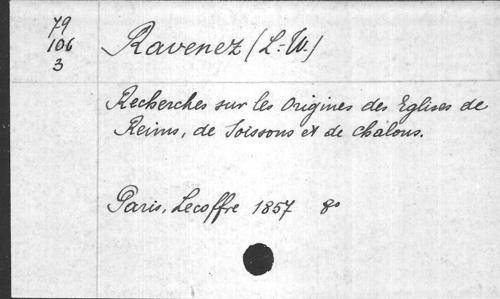 79
106
3
Ravenez (L.-W.)
Recherches sur les Origines des Eglises de
Reims, de Soissons et de Chalons.
Paris, Lecoffre 1857 8o